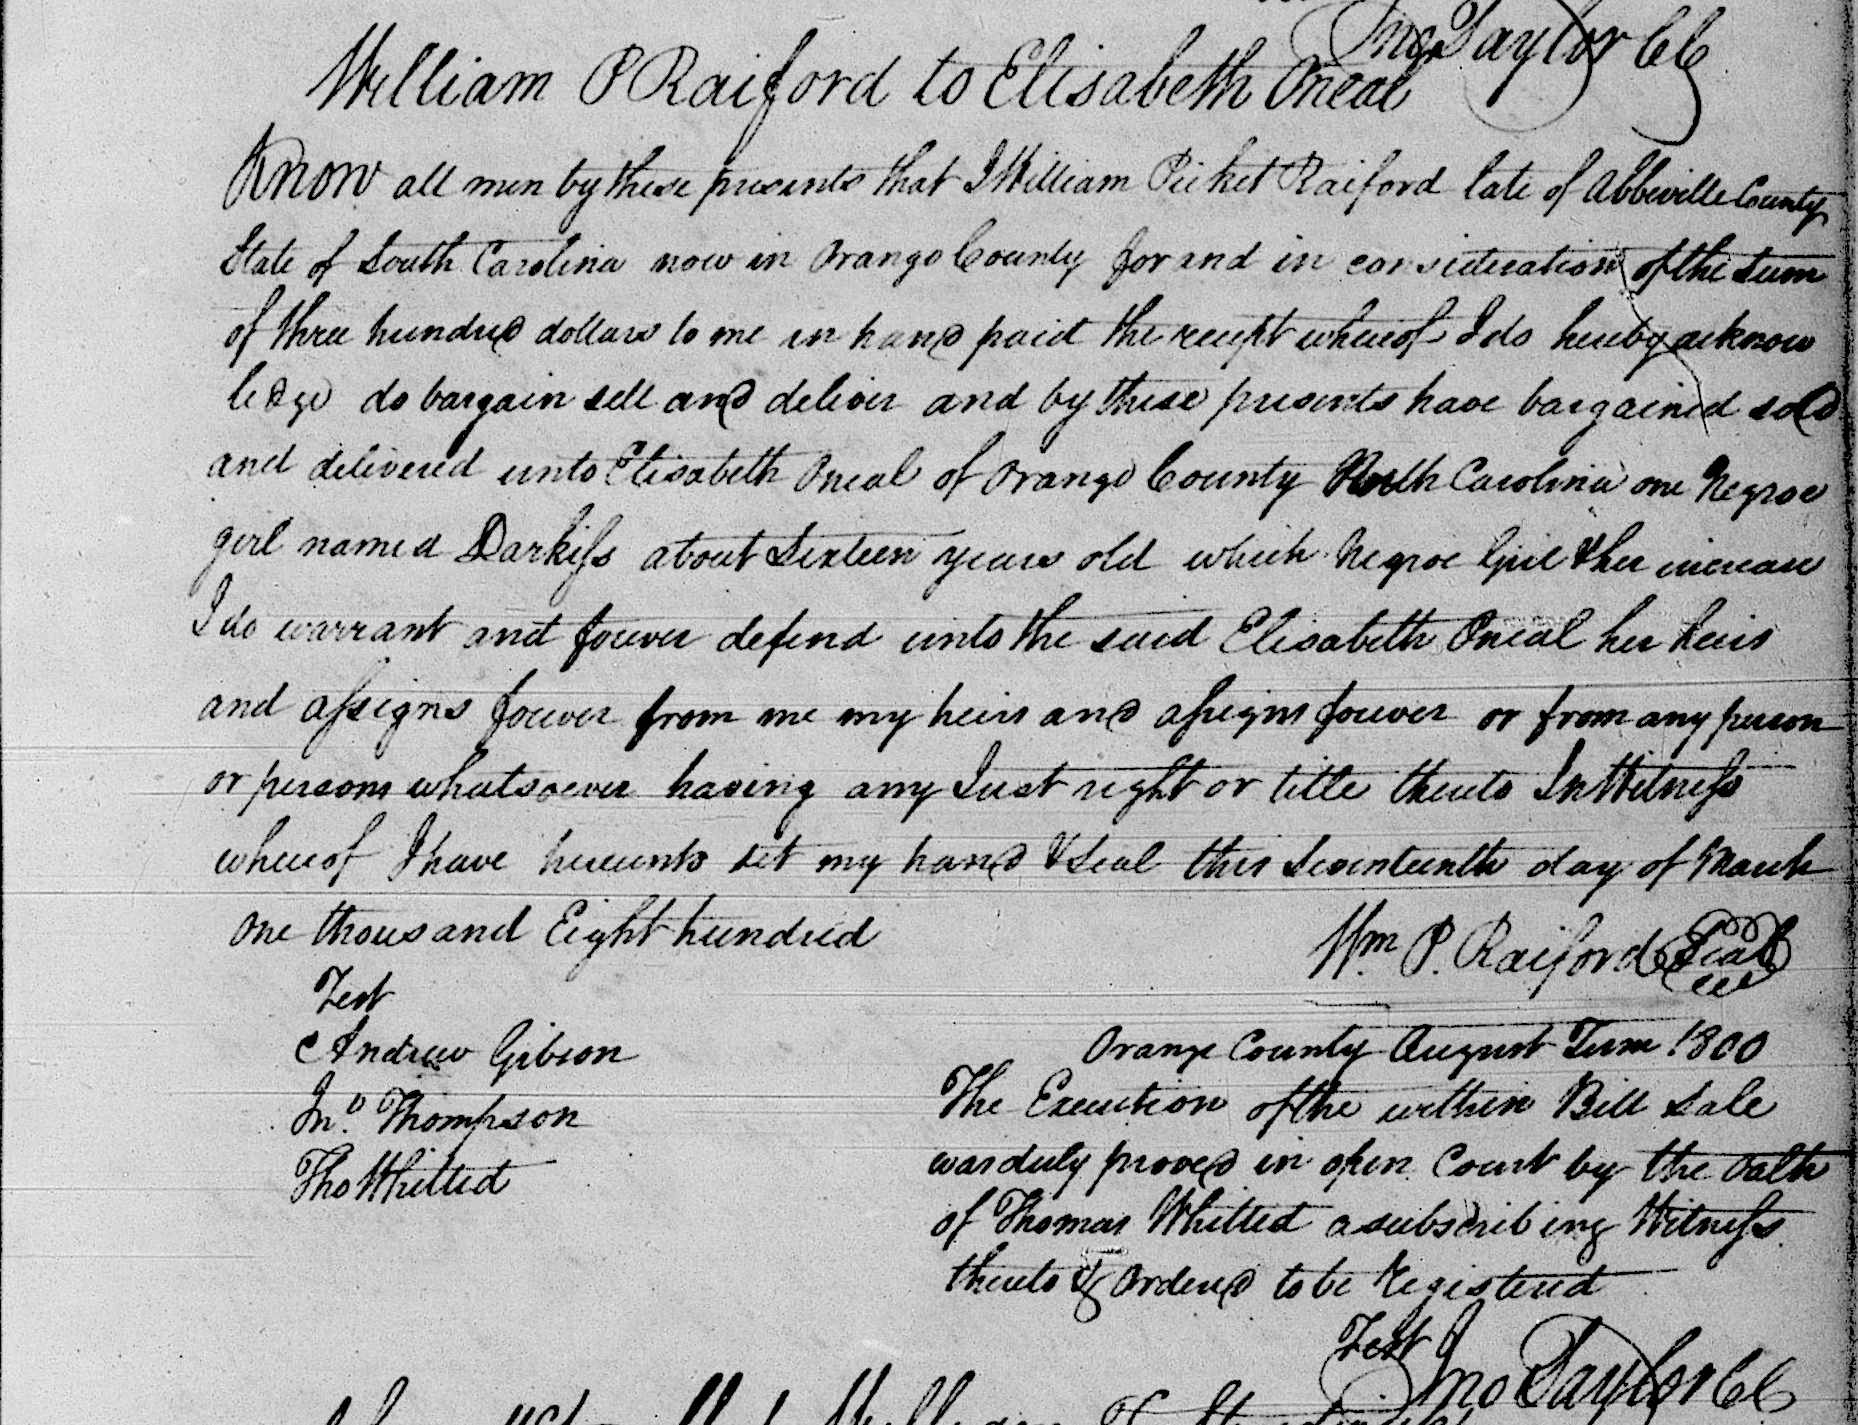 Jno Taylor CC
William P Raiford to Elisabeth Oneal
Know all men by these presents that I William Picket Raiford late of Abbeville County
State of South Carolina now in Orange County for and in consideration of the sum
of three hundred dollars to me in hand paid the receipt whereof I do hereby acknow
ledge do bargain sell and deliver and by these presents have bargained sold
and delivered unto Elisabeth Oneal of Orange County North Carolina one Negroe
girl named Darkiss about Sixteen years old which Negroe Girl & her increase
I do warrant and forever defend unto the said Elisabeth Oneal her heirs
and assigns forever from me my heirs and assigns forever or from any person
or persons whatsoever having any Just right or title thereto In Witness
whereof I have hereunto set my hand & Seal this Seventeenth day of March
One thousand Eight hundred
Wm P. Raiford Seal
Test
Andrew Gibson
Jno. Thompson
Tho Whitted
Orange County August Term 1800
The Execution of the within Bill Sale
was duly proved in open Court by the oath
of Thomas Whitted a subscribing Witness
thereto & Ordered to be Registered
Test Jno Taylor CC